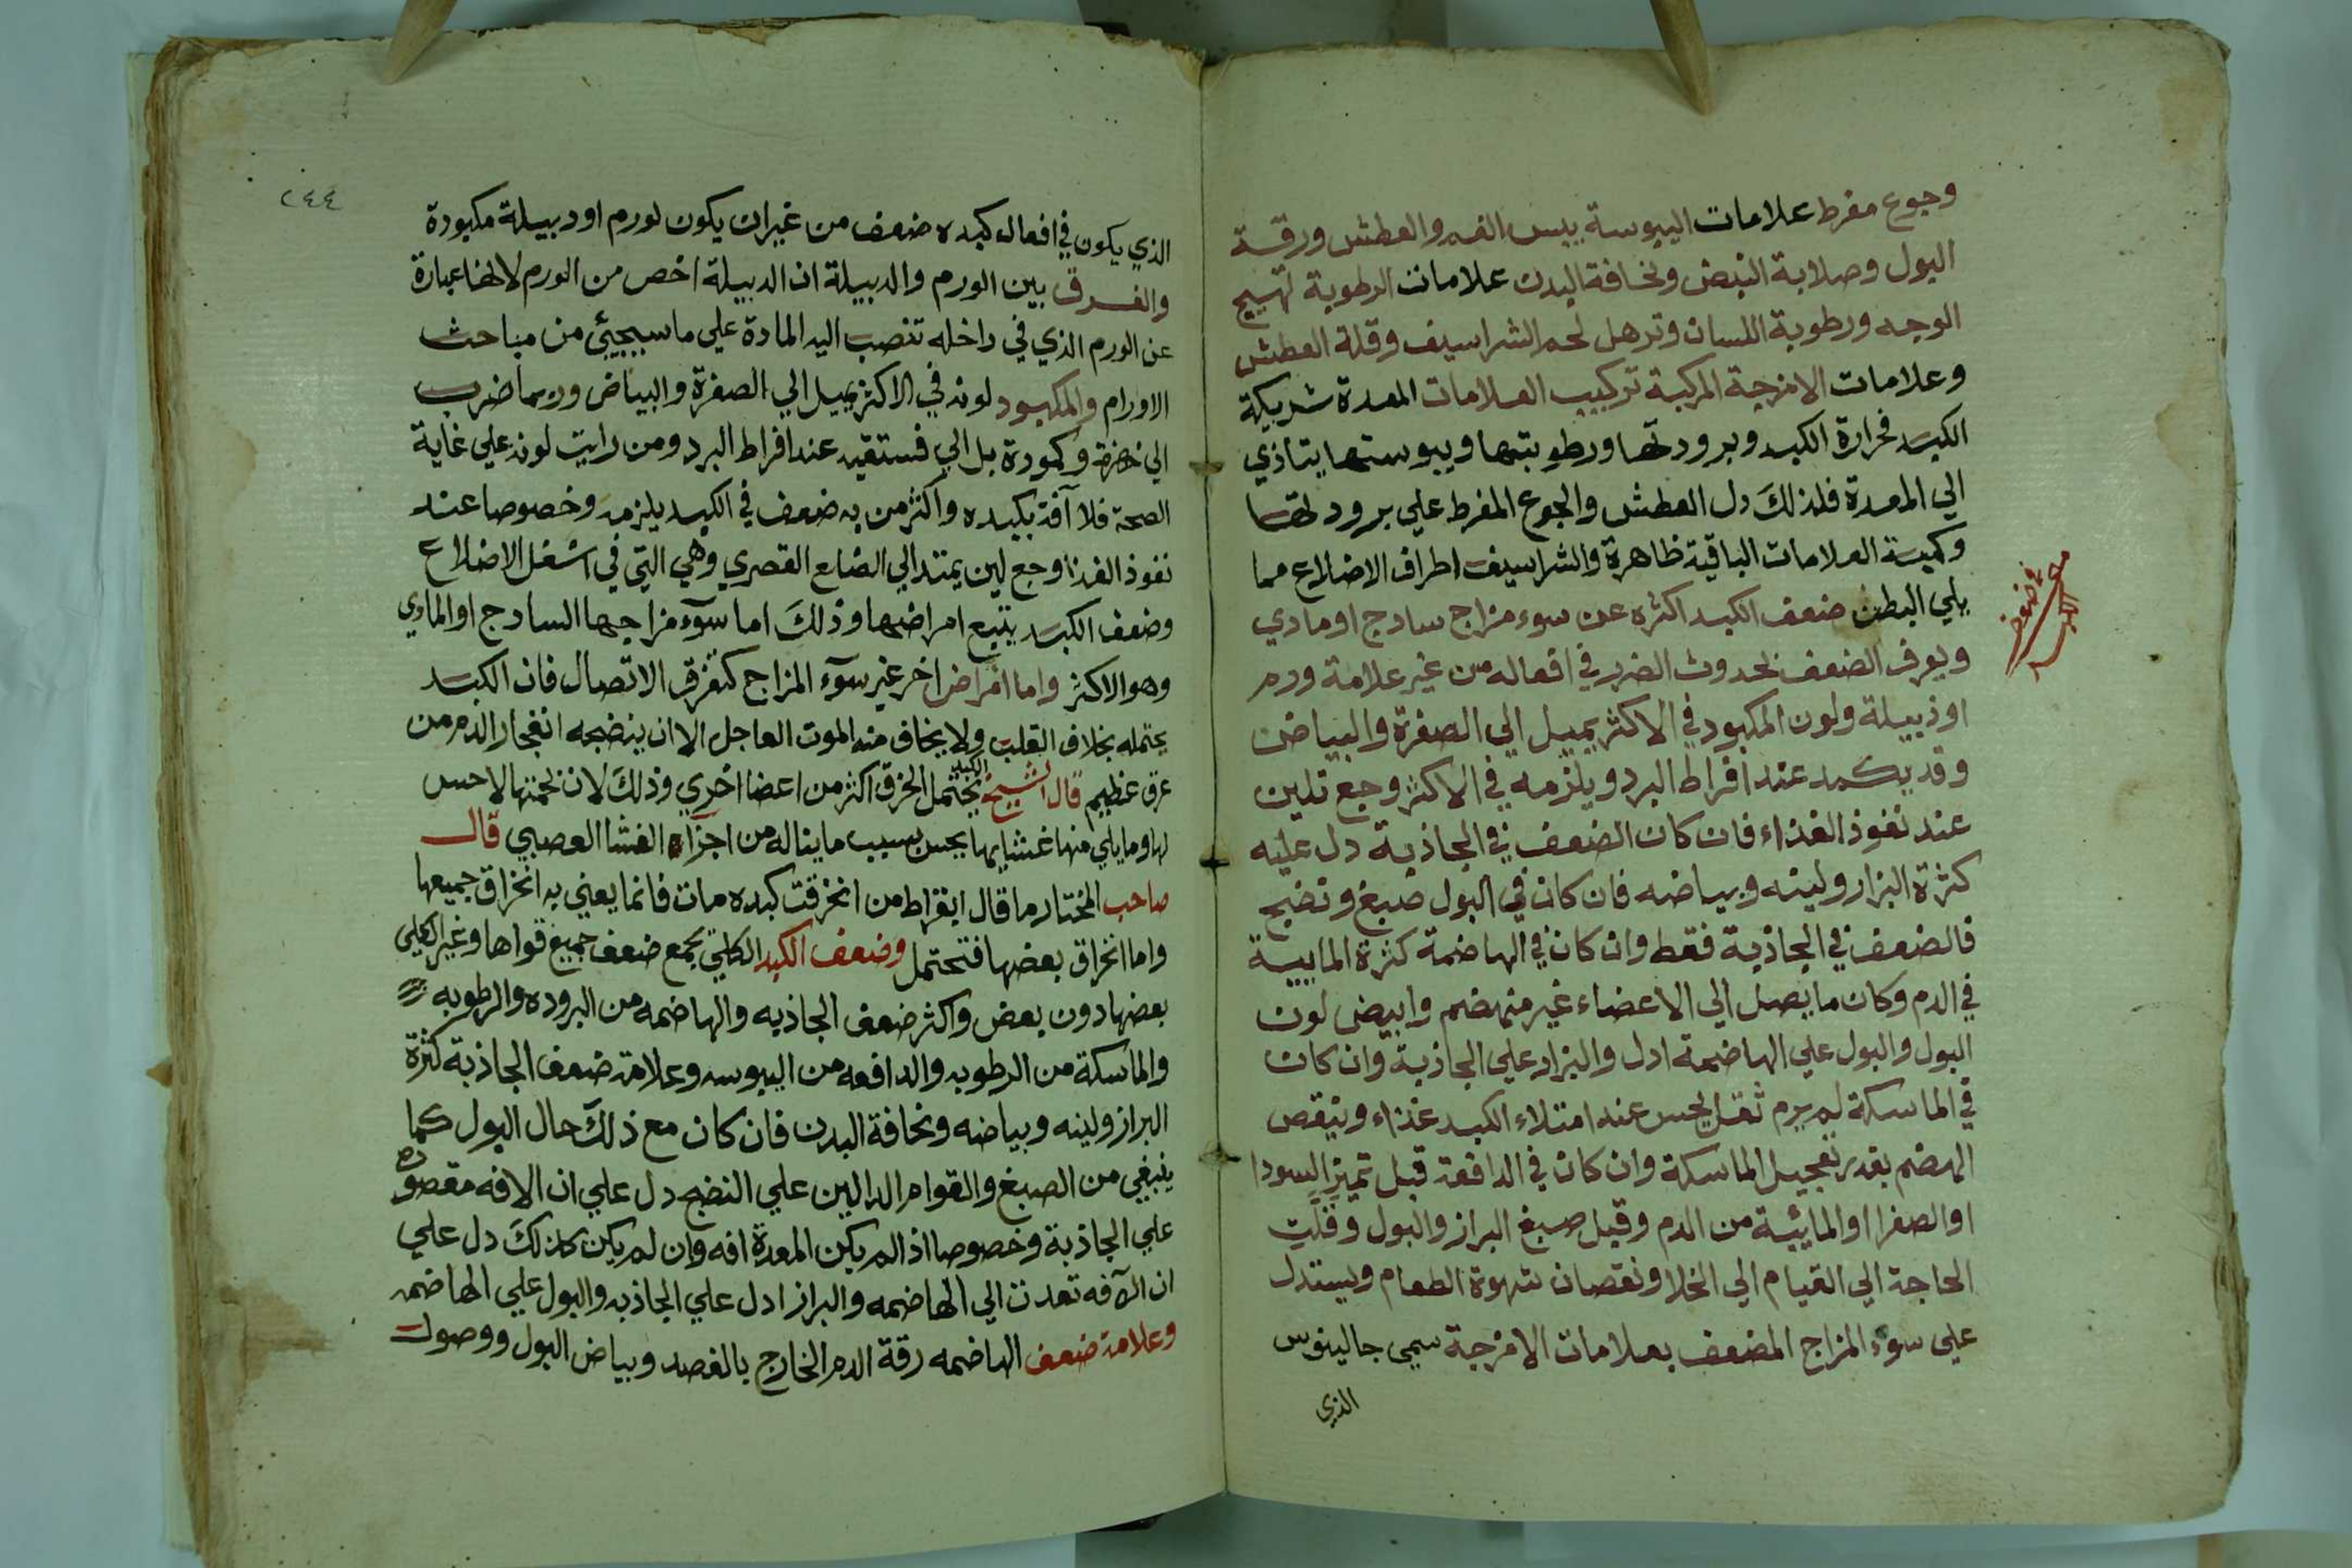 وجوع مفرط علامات اليبوسة يبس الفم والعطش ورقة
البول وصلابة النبض ونخافة البدن علامات الرطوبة تهييج
الوجه ورطوبة اللسان وترهل لحم الشراسيف وقلة العطش
وعلامات الامزجة المركبة تركيب العلامات المعدة شريكة
الكبد فحرارة الكبد وبرودتها ورطوبتها ويبوستها يتاذي
الي المعدة فلذلك دل العطش والجوع المفرط علي برودتها
وكمية العلامات الباقية ظاهرة والشراسيف اطراف الاضلاع مما
يلي البطن ضعف الكبد اكثره عن سوء مزاج سادج او مادي
ويعرف الضعف بحدوث الضرر في افعاله من غير علامة ورم
اوذبيلة ولون المكبود في الاكثر يميل الي الصفرة والبياض
وقد يكمد عند افراط البرد ويلزمه في الاكثر وجع تلين
عند نفوذ الغذاء فان كان الضعف في الجاذبة دل عليه
كثرة البزار ولينه وبياضه فان كان في البول صبغ ونضج
فالضعف في الجاذبة فقط وان كان في الهاضمة كثرة المايية
في الدم وكان ما يصل الي الاعضاء غير منهضم وابيض لون
البول والبول علي الهاضمة ادل والبزار علي الجاذبة وان كان
في الماسكة لم يرم ثقل يحس عند امتلاء الكبد غذاء وينقص
الهضم بقدر تعجيل الماسكة وان كان في الدافعة قبل تميز السودا
او الصفرا او المائية من الدم وقيل صبغ البراز والبول وقلت
الحاجة الي القيام الي الخلا ونقصان شهوة الطعام ويستدل
علي سوء المزاج المضعف بعلامات الامزجة سمي جالينوس
الذي
ضعف
الكبد
٢٤٤
الذي يكون في افعال كبده ضعف من غير ان يكون لورم او دبيلة مكبودة
والفرق بين الورم والدبيلة ان الدبيلة اخص من الورم لانها عبارة
عن الورم الذي في داخله تنصب اليه المادة علي ما سيجيئ من مباحث
الاورام والمكبود لونه في الاكثر يميل الي الصفرة والبياض وربما ضرب
الي خضرة وكمودة بل الي فستقيه عند افراط البرد ومن رايت لونه علي غاية
الصحة فلا آفة بكبده واكثر من به ضعف في الكبد يلزمه وخصوصا عند
نفوذ الغذا وجع لين يمتد الي الضلع القصري وهي التي في اسفل الاضلاع
وضعف الكبد يتبع امراضها وذلك اما سوء مزاجها السادج او المادي
وهو الاكثر واما امراض اخر غير سوء المزاج كتفرق الاتصال فان الكبد
يحتمله بخلاف القلب ولا يخاف منه الموت العاجل الا ان ينضجه انفجار الدم من
عرق عظيم قال الشيخ يحتمل الكبد الخرق اكثر من اعضا اخري وذلك لان لحمتها لا حس
لها وما يلي منها غشايها يحس بسبب ما يناله من اجزاء الغشا العصبي قال
صاحب المختار ما قال ابقراط من انخرقت كبده مات فانما يعني به انخراق جميعها
واما انخراق بعضها فتحتمل وضعف الكبد الكلي يجمع ضعف جميع قواها وغير الكلي
بعضها دون بعض واكثر ضعف الجاذبه والهاضمه من البروده والرطوبه
والماسكة من الرطوبه والدافعه من اليبوسه وعلامة ضعف الجاذبة كثرة
البراز ولينه وبياضه ونخافة البدن فان كان مع ذلك حال البول كما
ينبغي من الصبغ والقوام الدالين علي النضج دل علي ان الافه مقصوره
علي الجاذبة وخصوصا اذا لم يكن المعدة افه وان لم يكن كذلك دل علي
ان الآفه تعدت الي الهاضمه والبراز ادل علي الجاذبه والبول علي الهاضمه
وعلامة ضعف الهاضمه رقة الدم الخارج بالفصد وبياض البول ووصول